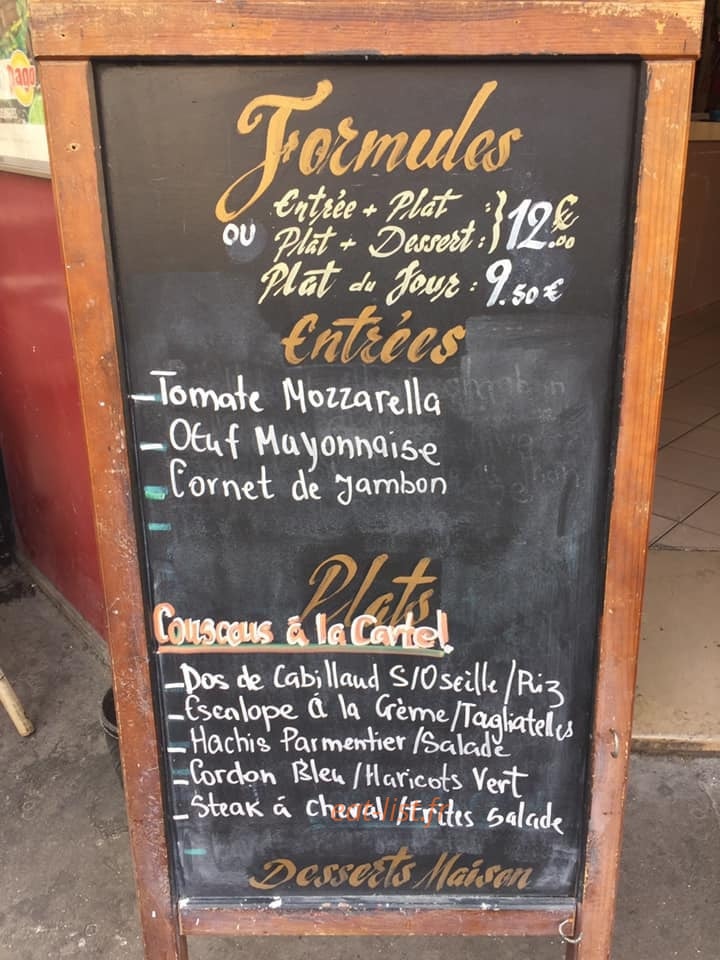 Pago
Formules
Entrée + Plat :
OU
Plat + Dessert :
} 12.00€
Plat du Jour : 9.50€
Entrées
- Tomate Mozzarella
- Oeuf Mayonnaise
- Cornet de Jambon
-
Plats
Couscous à la Carte!
- Dos de Cabillaud S/Oseille/Riz
- Escalope á la Crème/Tagliatelles
- Hachis Parmentier/Salade
- Cordon Bleu/Haricots Vert
- Steak á cheval/Frites Salade
eat-list.fr
-
Desserts Maison